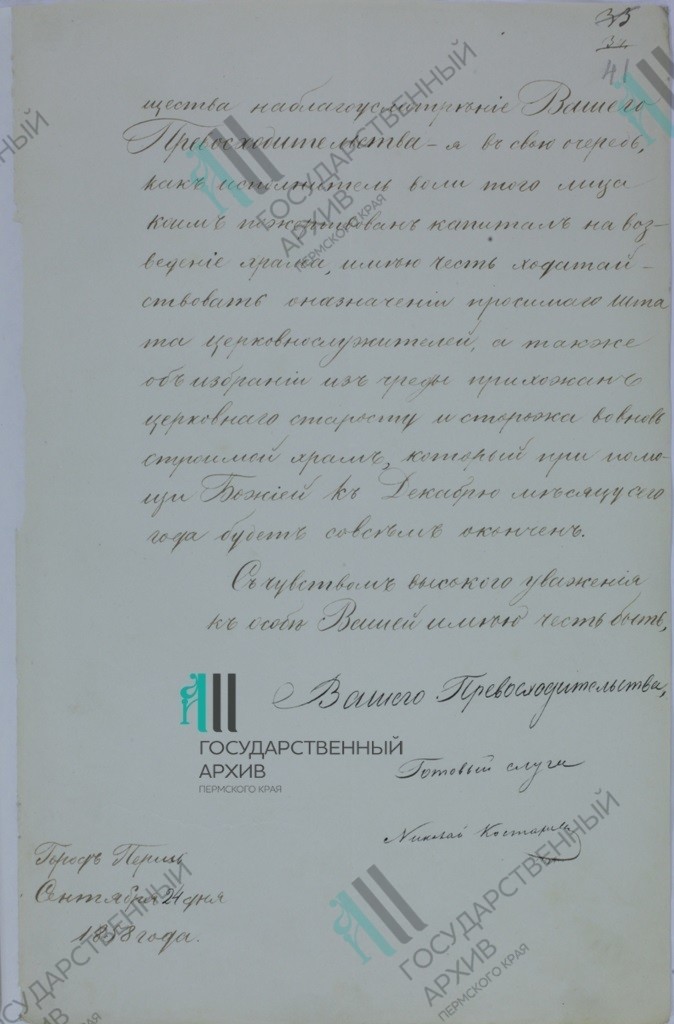 35
41
щества на благоусмотрѣніе Вашего
Превосходительства – я въ свою очередь,
какъ исполнитель воли того лица
коимъ пожертвованъ капиталъ на воз-
веденіе храма, имѣю честь ходатай-
ствовать о назначеніи просимаго шта
та церковнослужителей, а также
объ избраніи изъ среды прихожанъ
церковнаго старосту и сторожа во вновь
строимой храмъ, который при помо-
щи Божіей къ Декабрю мѣсяцу сего
года будетъ совсѣмъ оконченъ.
Съ чувствомъ высокого уваженія
къ особѣ Вашей имѣю честь быть,
Вашего Превосходительства,
Готовый слуга
Николай
Городъ Пермь
Сентября 24 дня
1858 года.
ГОСУДАРСТВЕННЫЙ
АРХИВ
ПЕРМСКОГО КРАЯ
ГОСУДАРСТВЕННЫЙ
АРХИВ
ПЕРМСКОГО КРАЯ
ГОСУДАРСТВЕННЫЙ
АРХИВ
ПЕРМСКОГО КРАЯ